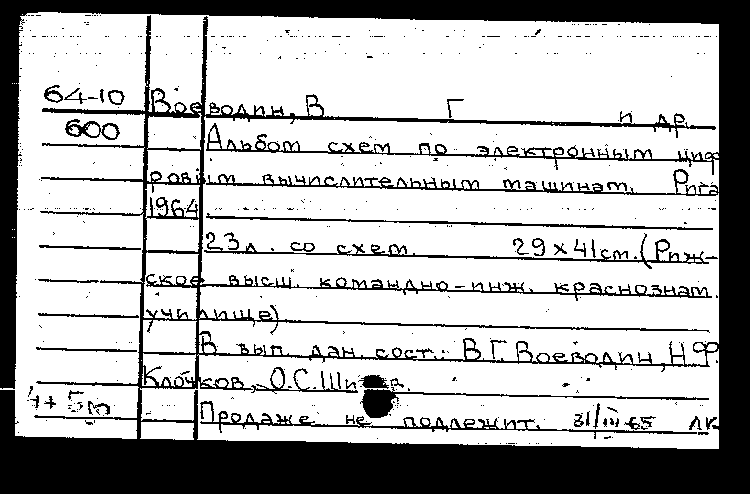 64-10 Воеводин, В Г и др.
600 Альбом схем по электронным циф
ровым вычислительным машинам. Рига
1964
23л. со схем. 29×41см. (Риж-
ское высш. командно-инж. краснознам.
училище)
В вып. дан. сост.: В.Г. Воеводин, Н.Ф.
Клочков, О.С.
4+5м Продаже не подлежит. 31/III-65 ЛК